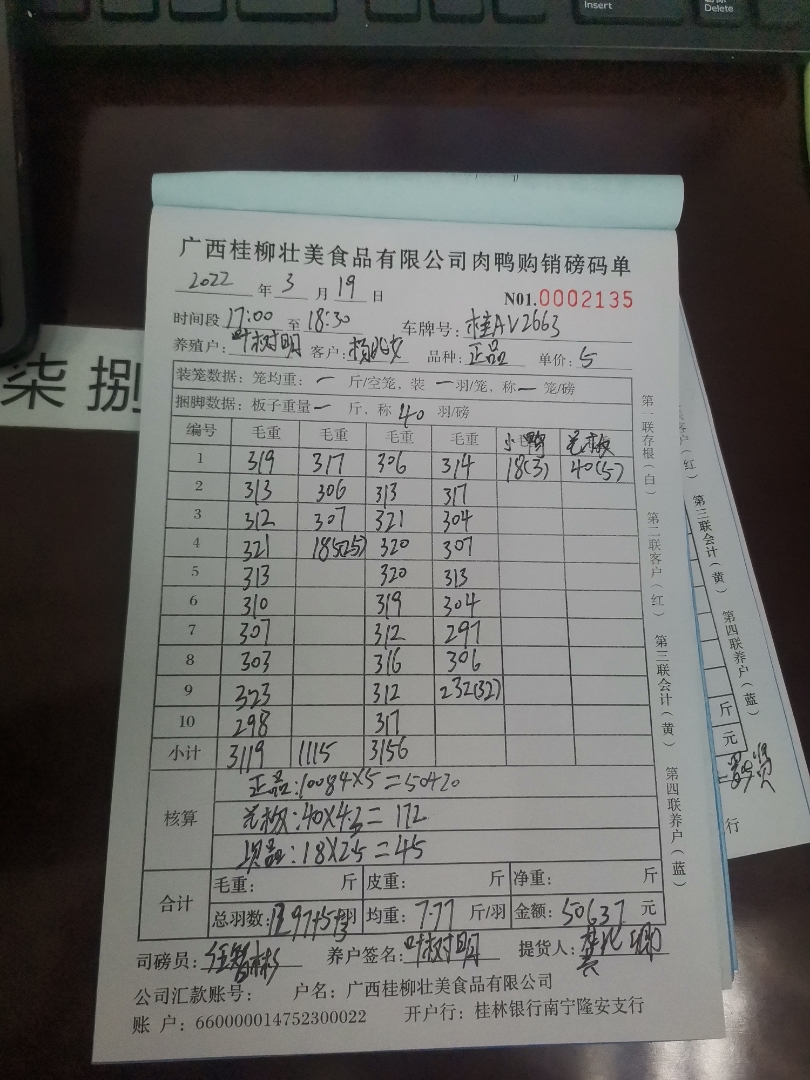 Insert
Delete
柒 捌
广西桂柳壮美食品有限公司肉鸭购销磅码单
2022 年 3 月 19 日 N01.0002135
时间段 17:00 至 18:30 车牌号: 桂AV2663
养殖户: 叶树明 客户: 品种: 正品 单价: 5
装笼数据: 笼均重: 一 斤/空笼, 装 一 羽/笼, 称 一 笼/磅
捆脚数据: 板子重量 一 斤, 称 40 羽/磅
编号 毛重 毛重 毛重 毛重 小鸭 毛板
1 319 317 306 314 18(3) 40(5)
2 313 306 313 317
3 312 307 321 304
4 321 185(25) 320 307
5 313 320 313
6 310 319 304
7 307 312 297
8 303 316 306
9 323 312 232(32)
10 298 317
小计 3119 1115 3156
核算 正品:10084×5=50420
毛板:40×4.3=172
次品:18×2.5=45
合计 毛重: 斤 皮重: 斤 净重: 斤
总羽数: 1297+5+3 羽 均重: 7.77 斤/羽 金额: 50637 元
司磅员: 养户签名: 叶树明 提货人:
公司汇款账号: 户名: 广西桂柳壮美食品有限公司
账 户: 660000014752300022 开户行: 桂林银行南宁隆安支行
第一联存根(白) 第二联客户(红) 第三联会计(黄) 第四联养户(蓝)
(红) 第三联会计(黄) 第四联养户(蓝)
斤
元
行